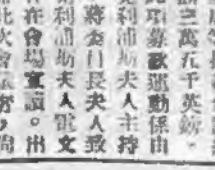 三萬五千英鎊。
此項募欵運動係由
利浦斯夫人主持
蔣委員長夫人致
利浦斯夫人電文
在會場宣讀。出